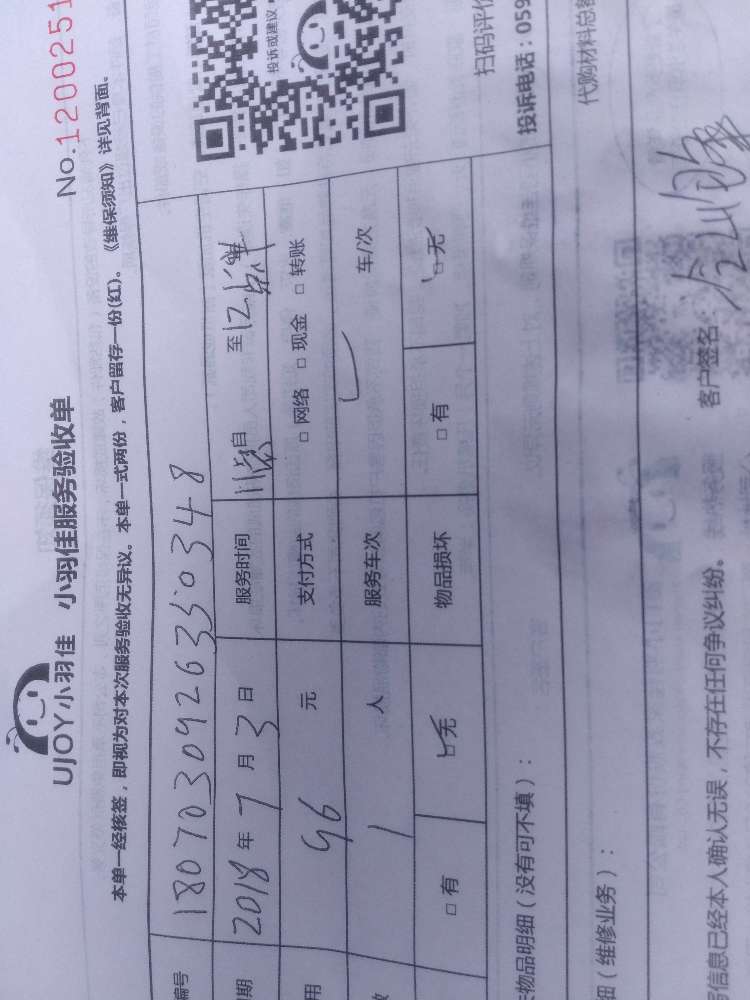 UJOY小羽佳 小羽佳服务验收单
No.1200251
本单一经核签，即视为对本次服务验收无异议。本单一式两份，客户留存一份(红)。《维保须知》详见背面。
编号 1807030926350348
期 2018年7月3日 服务时间 11点 自 至 12点半
用 96 元 支付方式 □网络 □现金 □转账
数 1 人 服务车次 车/次
□有 □无 物品损坏 □有 □无
投诉或建议
扫码评价
投诉电话：059
物品明细（没有可不填）：
代购材料总
细（维修业务）：
信息已经本人确认无误，不存在任何争议纠纷。 客户签名：